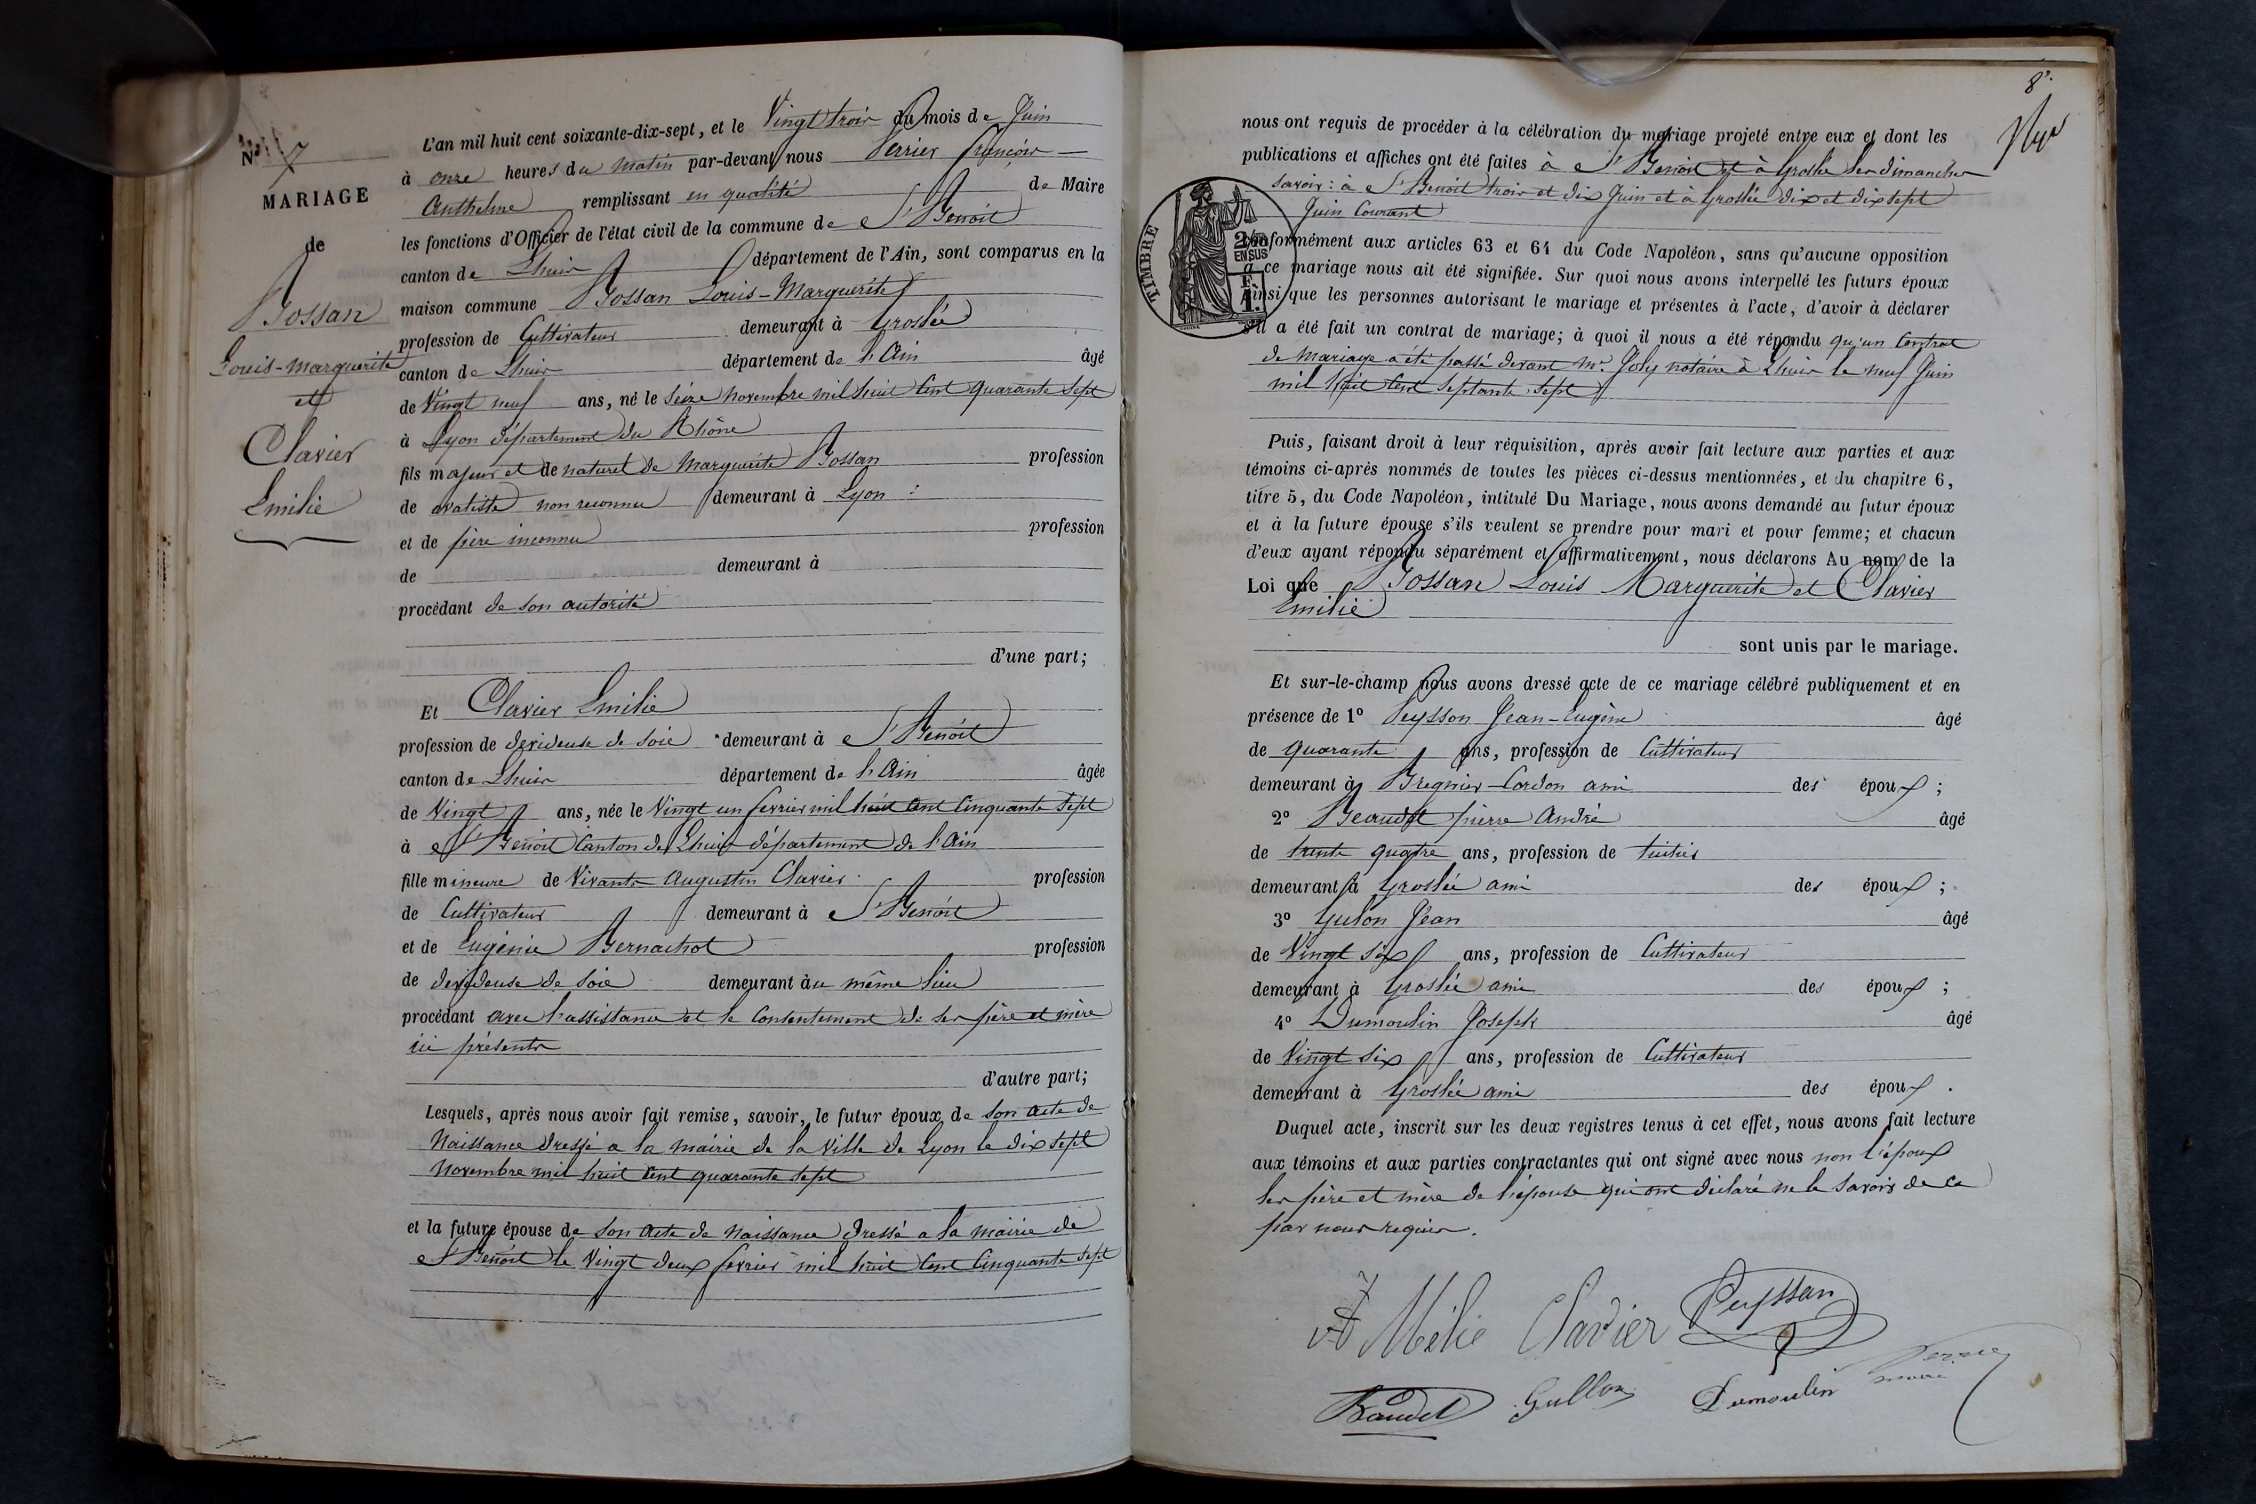 N° 7
MARIAGE
de
Bossan
Louis-Marguerite
et
Clavier
Emilie
L'an mil huit cent soixante-dix-sept, et le Vingt trois du mois de Juin
à onze heures du matin par-devant nous Perrier François
Anthelme remplissant en qualité de Maire
les fonctions d'Officier de l'état civil de la commune de St Benoit
canton de Lhuis département de l'Ain, sont comparus en la
maison commune Bossan Louis-Marguerite
profession de Cultivateur demeurant à Groslée
canton de Lhuis département de l'Ain âgé
de Vingt neuf ans, né le Seize novembre mil huit Cent quarante Sept
à Lyon département du Rhône
fils majeur et de naturel de Marguerite Bossan profession
de ovaliste non reconnu demeurant à Lyon :
et de père inconnu profession
de demeurant à
procédant de son autorité
d'une part;
Et Clavier Emilie
profession de devideuse de soie demeurant à St Benoit
canton de Lhuis département de l'Ain âgée
de Vingt ans, née le Vingt un fevrier mil huit Cent Cinquante Sept
à St Benoit Canton de Lhuis département de l'Ain
fille mineure de Vivants Augustin Clavier profession
de Cultivateur demeurant à St Benoit
et de Eugénie Bernachot profession
de devideuse de soie demeurant àu même lieu
procédant avec l'assistance et le Consentement de ses père et mère
ici présents
d'autre part;
Lesquels, après nous avoir fait remise, savoir, le futur époux de son acte de
Naissance dressé a la mairie de la Ville de Lyon le dix sept
Novembre mil huit Cent quarante sept
et la future épouse de son acte de naissance dressé a la mairie de
St Benoit le Vingt deux fevrier mil huit Cent Cinquante sept
8
nous ont requis de procéder à la célébration du mariage projeté entre eux et dont les
publications et affiches ont été faites à St Benoit et à Groslée les dimanches
savoir : à St Benoit trois et dix Juin et à Groslée dix et dix sept
Juin Courant
TIMBRE
2/10 EN SUS
F. 1.
conformément aux articles 63 et 64 du Code Napoléon, sans qu'aucune opposition
à ce mariage nous ait été signifiée. Sur quoi nous avons interpellé les futurs époux
ainsi que les personnes autorisant le mariage et présentes à l'acte, d'avoir à déclarer
s'il a été fait un contrat de mariage; à quoi il nous a été répondu qu'un Contrat
de Mariage a été passé devant Mr Joly notaire à Lhuis le neuf Juin
mil huit Cent septante sept
Puis, faisant droit à leur réquisition, après avoir fait lecture aux parties et aux
témoins ci-après nommés de toutes les pièces ci-dessus mentionnées, et du chapitre 6,
titre 5, du Code Napoléon, intitulé Du Mariage, nous avons demandé au futur époux
et à la future épouse s'ils veulent se prendre pour mari et pour femme; et chacun
d'eux ayant répondu séparément et affirmativement, nous déclarons Au nom de la
Loi que Bossan Louis Marguerite et Clavier
Emilie
sont unis par le mariage.
Et sur-le-champ nous avons dressé acte de ce mariage célébré publiquement et en
présence de 1° Peysson Jean-Eugène âgé
de quarante ans, profession de Cultivateur
demeurant à Bregnier-Cordon ami des époux ;
2° Beaudet pierre André âgé
de trente quatre ans, profession de
demeurant à Groslée ami des époux ;
3° Gulon Jean âgé
de Vingt six ans, profession de Cultivateur
demeurant à Groslée ami des époux ;
4° Dumoulin Joseph âgé
de Vingt six ans, profession de Cultivateur
demeurant à Groslée ami des époux .
Duquel acte, inscrit sur les deux registres tenus à cet effet, nous avons fait lecture
aux témoins et aux parties contractantes qui ont signé avec nous non l'époux
les père et mère de l'épouse qui ont déclaré ne le savoir de ce
par nous requis.
Mélie Clavier Peyssan
Baudet Gullon Dumoulin Perrier
maire